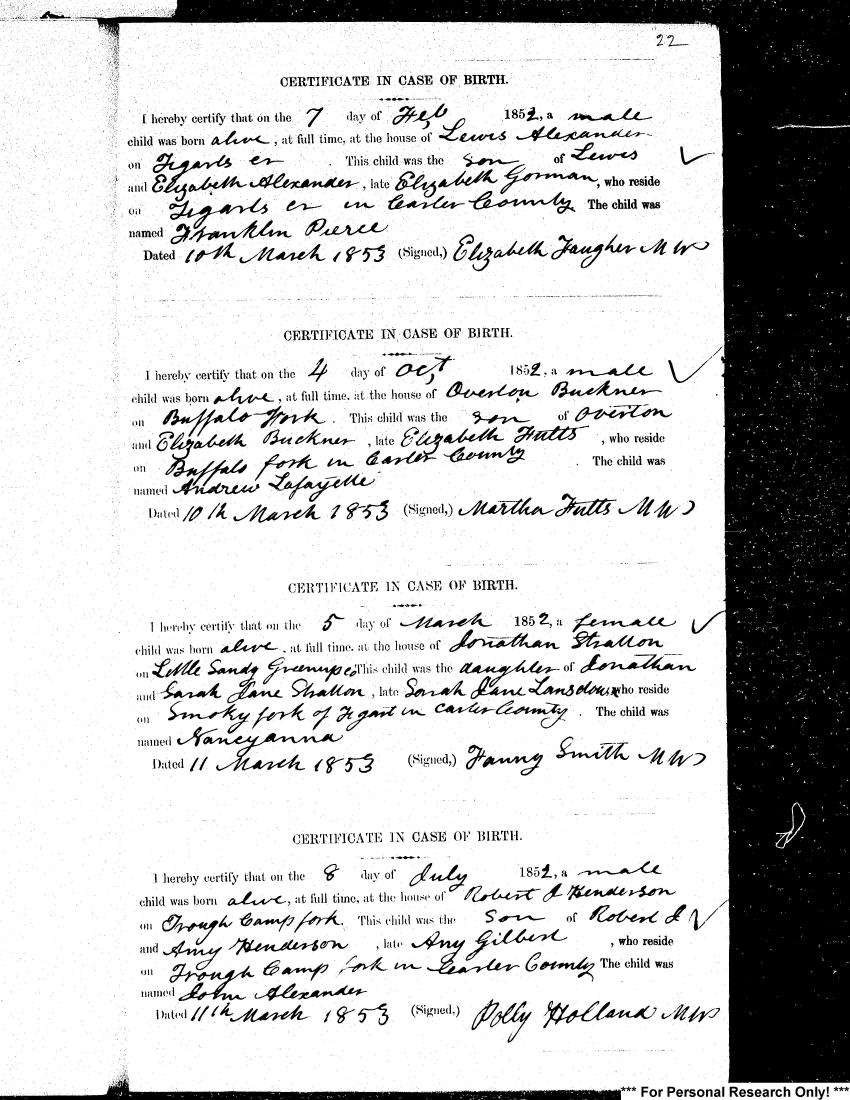 22
CERTIFICATE IN CASE OF BIRTH.
I hereby certify that on the 7 day of Feb 1852, a male
child was born alive, at full time, at the house of Lewis Alexander
on Tigarts cr . This child was the son of Lewis
and Elizabeth Alexander, late Elizabeth Gorman, who reside
on Tigarts cr in Carter County The child was
named Franklin Pierce
Dated 10th March 1853 (Signed,) Elizabeth Faugher M W
CERTIFICATE IN CASE OF BIRTH.
I hereby certify that on the 4 day of Oct 1852, a male
child was born alive, at full time, at the house of Overton Buckner
on Buffalo Fork . This child was the son of Overton
and Elizabeth Buckner , late Elizabeth Fults , who reside
on Buffalo fork in Carter County . The child was
named Andrew Lafayette
Dated 10th March 1853 (Signed,) Martha Fults M W
CERTIFICATE IN CASE OF BIRTH.
I hereby certify that on the 5 day of March 1852, a female
child was born alive, at full time, at the house of Jonathan Stratton
on Little Sandy Greenup co This child was the daughter of Jonathan
and Sarah Jane Stratton , late Sarah Jane Lansdown who reside
on Smoky fork of Tigart in Carter County . The child was
named Nancyanna
Dated 11 March 1853 (Signed,) Fanny Smith M W
CERTIFICATE IN CASE OF BIRTH.
I hereby certify that on the 8 day of July 1852, a male
child was born alive, at full time, at the house of Robert J Henderson
on Trough Camp fork. This child was the Son of Robert J
and Amy Henderson , late Amy Gilbert , who reside
on Trough Camp fork in Carter County The child was
named John Alexander
Dated 11th March 1853 (Signed,) Polly Holland M W
*** For Personal Research Only! ***